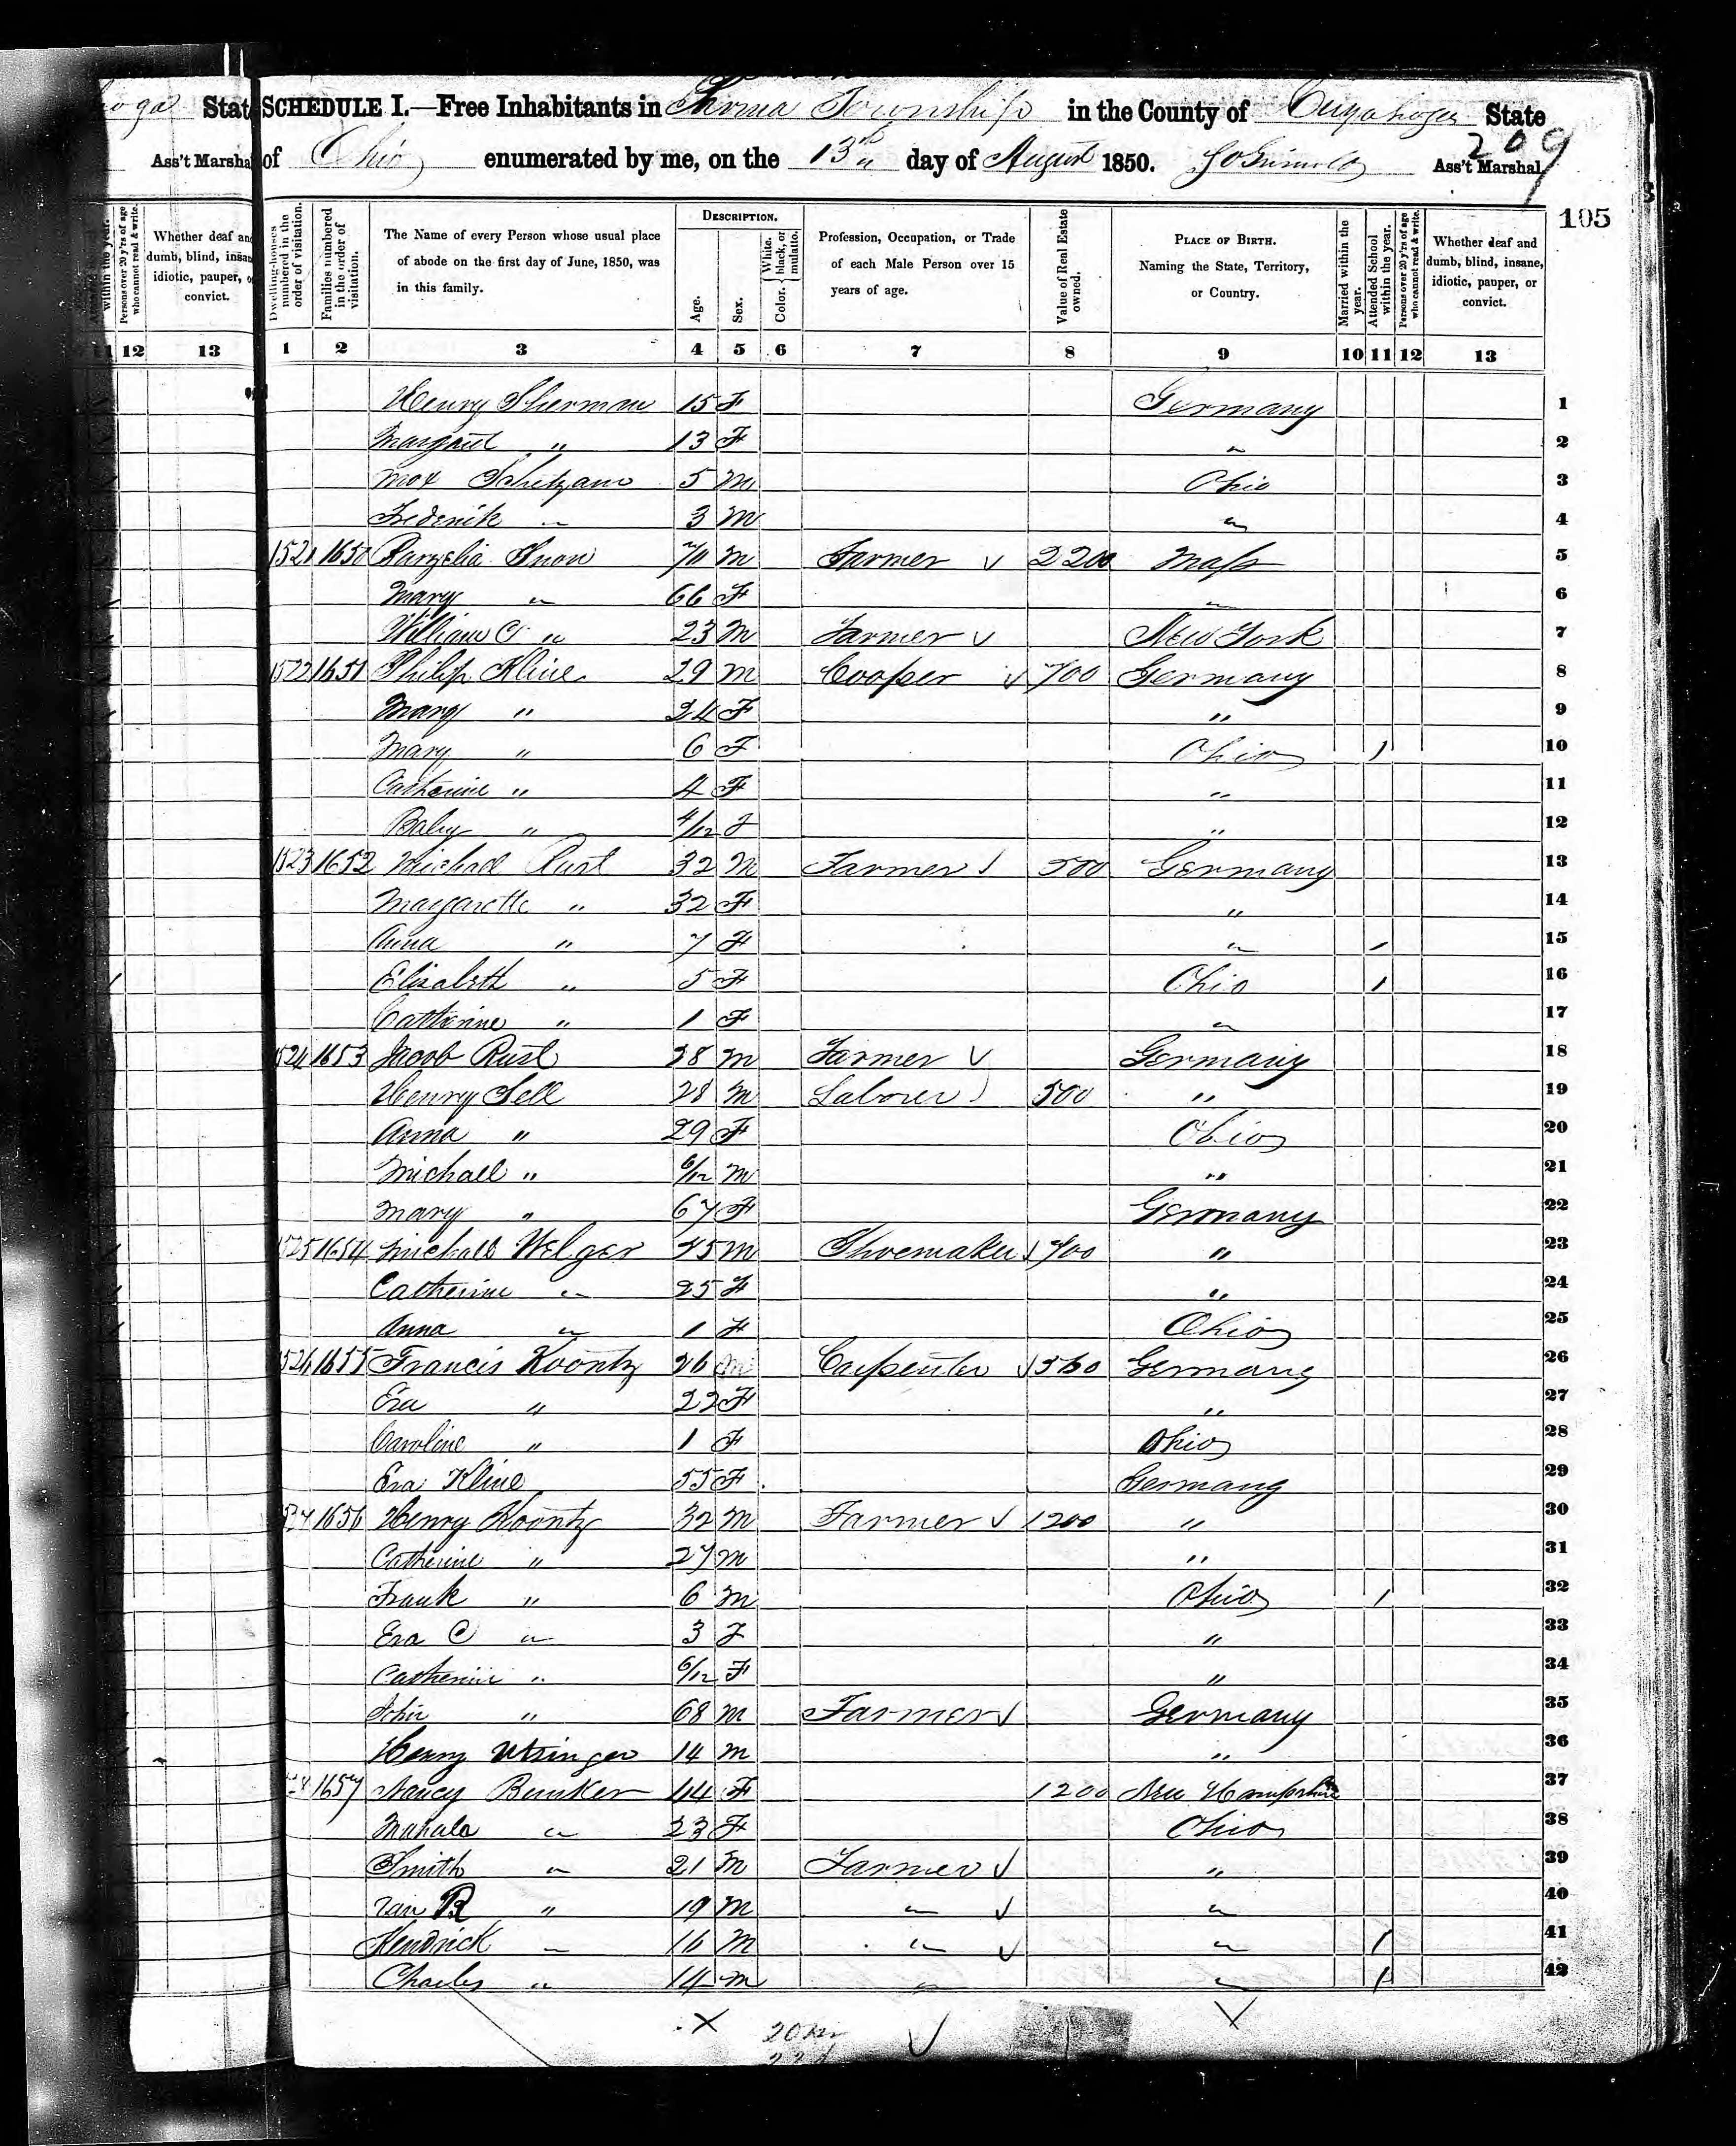 State SCHEDULE I.—Free Inhabitants in Parma Township in the County of Cuyahoga State
209
Ass't Marshal of Ohio enumerated by me, on the 13th day of August 1850. Ass't Marshal
105
Dwelling-houses numbered in the order of visitation. Families numbered in the order of visitation. The Name of every Person whose usual place of abode on the first day of June, 1850, was in this family. DESCRIPTION. Age. Sex. Color. White, black, or mulatto. Profession, Occupation, or Trade of each Male Person over 15 years of age. Value of Real Estate owned. PLACE OF BIRTH. Naming the State, Territory, or Country. Married within the year. Attended School within the year. Persons over 20 y'rs of age who cannot read & write. Whether deaf and dumb, blind, insane, idiotic, pauper, or convict.
11 12 13 1 2 3 4 5 6 7 8 9 10 11 12 13
Henry Sherman 15 F Germany 1
Margaret " 13 F " 2
5 M Ohio 3
Frederick " 3 M " 4
1521 1650 Barzelia Snow 70 M Farmer 2200 Mass 5
Mary " 66 F " 6
William C " 23 M Farmer New York 7
1522 1651 Philip Kline 29 M Cooper 700 Germany 8
Mary " 24 F " 9
Mary " 6 F Ohio / 10
Catherine " 4 F " 11
Baby " 4/12 F " 12
1523 1652 Michael Rust 32 M Farmer 500 Germany 13
Margarette " 32 F " 14
Anna " 7 F " / 15
Elisabeth " 5 F Ohio / 16
Catherine " 1 F " 17
1524 1653 Jacob Rust 28 M Farmer Germany 18
Henry Sell 28 M Laborer 500 " 19
Anna " 29 F Ohio 20
Michael " 6/12 M " 21
Mary " 67 F Germany 22
1525 1654 Michael Welger 25 M Shoemaker 700 " 23
Catherine " 25 F " 24
Anna " 1 F Ohio 25
1526 1655 Francis Koontz 26 M Carpenter 560 Germany 26
Eva " 22 F " 27
Caroline " 1 F Ohio 28
Eva Kline 55 F Germany 29
1527 1656 Henry Koontz 32 M Farmer 1200 " 30
Catherine " 27 M " 31
Frank " 6 M Ohio / 32
Eva C " 3 F " 33
Catherine " 6/12 F " 34
John " 68 M Farmer Germany 35
Henry 14 M " 36
1657 Nancy Bunker 44 F 1200 New Hampshire 37
Mahala " 23 F Ohio 38
Smith " 21 M Farmer " 39
Van R " 19 M " " 40
Hendrick " 16 M " " / 41
Charles " 14 M " " / 42